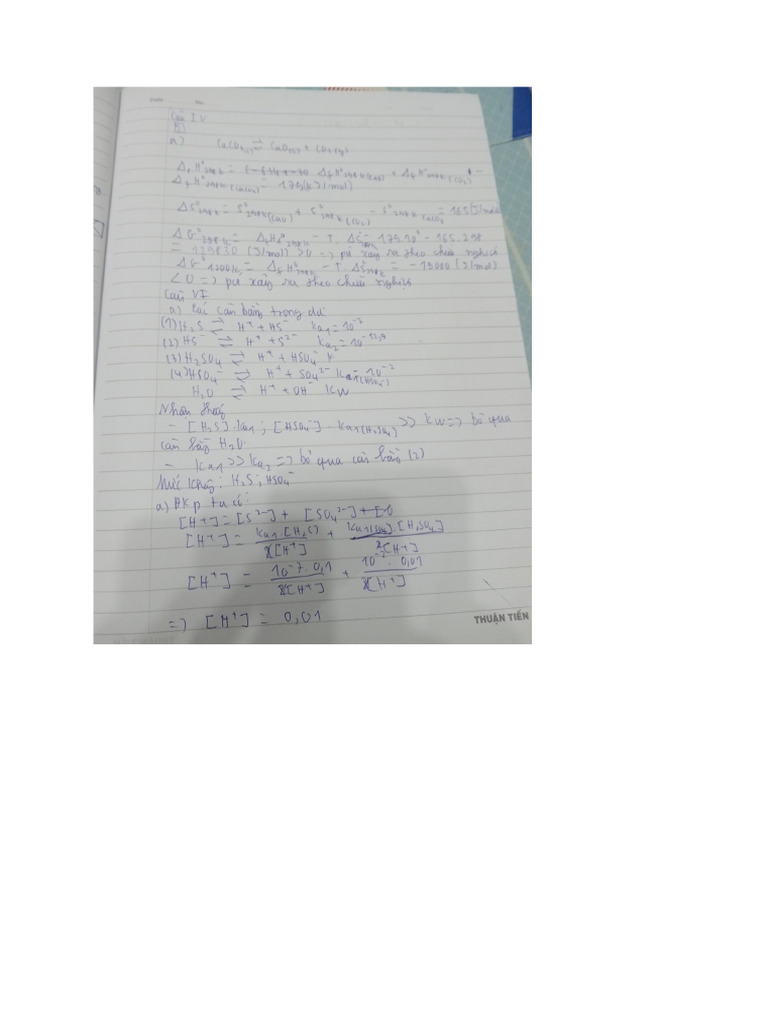 Câu IV
a)
CaCO3(r) ⇌ CaO(r) + CO2(g)
ΔfH°298K = ΔfH°298K(CaO) + ΔfH°298K(CO2) -
ΔfH°298K(CaCO3) = 179(kJ/mol)
ΔS°298K = S°298K(CaO) + S°298K(CO2) - S°298K CaCO3 = 165(J/mol
ΔG°298K = ΔfH°298K - T. ΔS°298K = 179.10³ - 165.298
= 129830 (J/mol) >0 => pư xảy ra theo chiều nghịch
ΔG°1200K = ΔfH°298K - T. ΔS°298K = -19000 (J/mol)
<0 => pư xảy ra theo chiều nghịch
Câu VI
a) Các cân bằng trong dd
(1) H2S ⇌ H+ + HS- Ka1 = 10^-7
(2) HS- ⇌ H+ + S2- Ka2 = 10^-12,9
(3) H2SO4 ⇌ H+ + HSO4-
(4) HSO4- ⇌ H+ + SO4 2- Ka1(HSO4-) = 10^-2
H2O ⇌ H+ + OH- Kw
Nhận thấy
- [H2S].Ka1 ; [HSO4-].Ka1(H2SO4) >> Kw => bỏ qua
cân bằng H2O
- Ka1 >> Ka2 => bỏ qua cân bằng (2)
Mức không: H2S ; HSO4-
a) ĐKp ta có:
[H+] = [S2-] + [SO4 2-]
[H+] = Ka1.[H2S]/[H+] + Ka1(SO4).[H2SO4]/[H+]
[H+] = 10^-7 . 0,1/[H+] + 10^-2 . 0,01/[H+]
=> [H+] = 0,01
THUẬN TIẾN